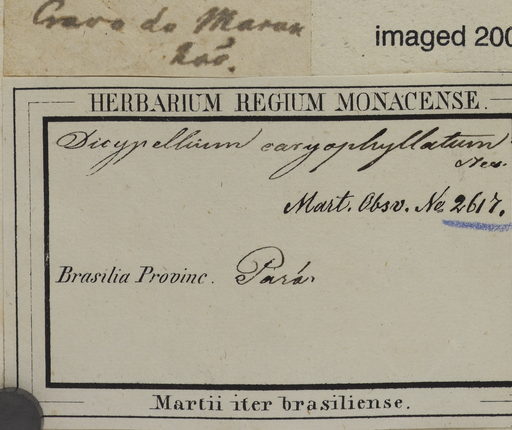 Cravo do Maran
hão.
imaged 200
HERBARIUM REGIUM MONACENSE.
Dicypellium caryophyllatum
Nees.
Mart. Obsv. No 2617.
Brasilia Provinc. Pará.
Martii iter brasiliense.